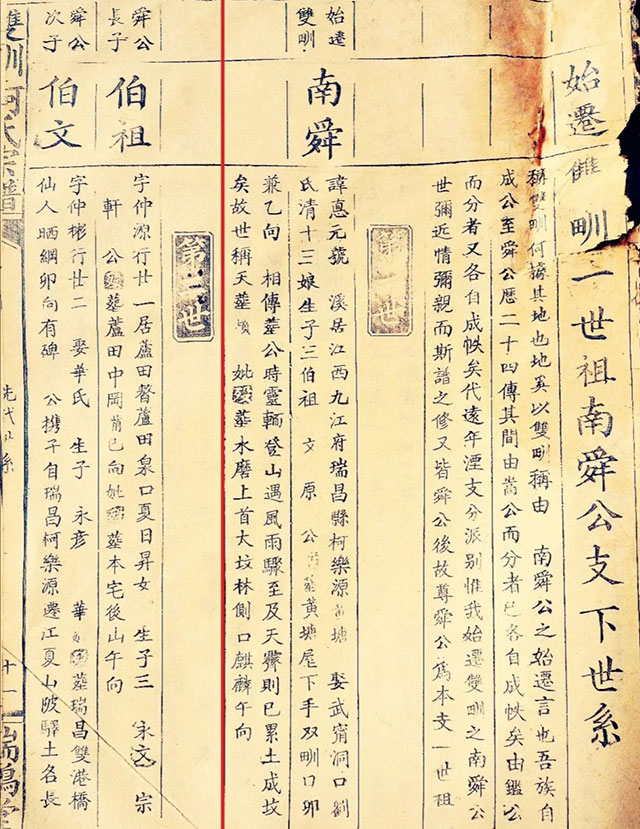 始遷雙甽一世祖南舜公支下世系
稱雙甽何據其地也地奚以雙甽稱由 南舜公之始遷言也吾族自
成公至舜公歷二十四傳其間由嵩公而分者已各自成帙矣由鑑公
而分者又各自成帙矣代遠年湮支分派別惟我始遷雙甽之南舜公
世彌近情彌親而斯譜之修又皆舜公後故尊舜公爲本支一世祖
第一世
始遷
雙甽
南舜
諱惪元號 溪居江西九江府瑞昌縣柯樂源 塘 娶武甯洞口劉
氏清十三娘生子三伯祖 文 原 公 葬黃塘屋下手双甽口卯
兼乙向 相傳葬公時靈輀登山遇風雨驟至及天霽則已累土成坟
矣故世稱天葬墳 妣 葬水磨上首大坟林側口麒麟午向
第二世
舜公
長子
伯祖
字仲源行廿一居蘆田磬蘆田泉口夏日昇女 生子三 永文 宗
軒 公 葬蘆田中岡 巳向妣 葬本宅後山午向
舜公
次子
伯文
字仲彬行廿二 娶華氏 生子 永彥 華 葬瑞昌雙港橋
仙人晒網卯向有碑 公携子自瑞昌柯樂源遷江夏山陂驛土名長
雙甽柯氏宗譜
先代世系
十一